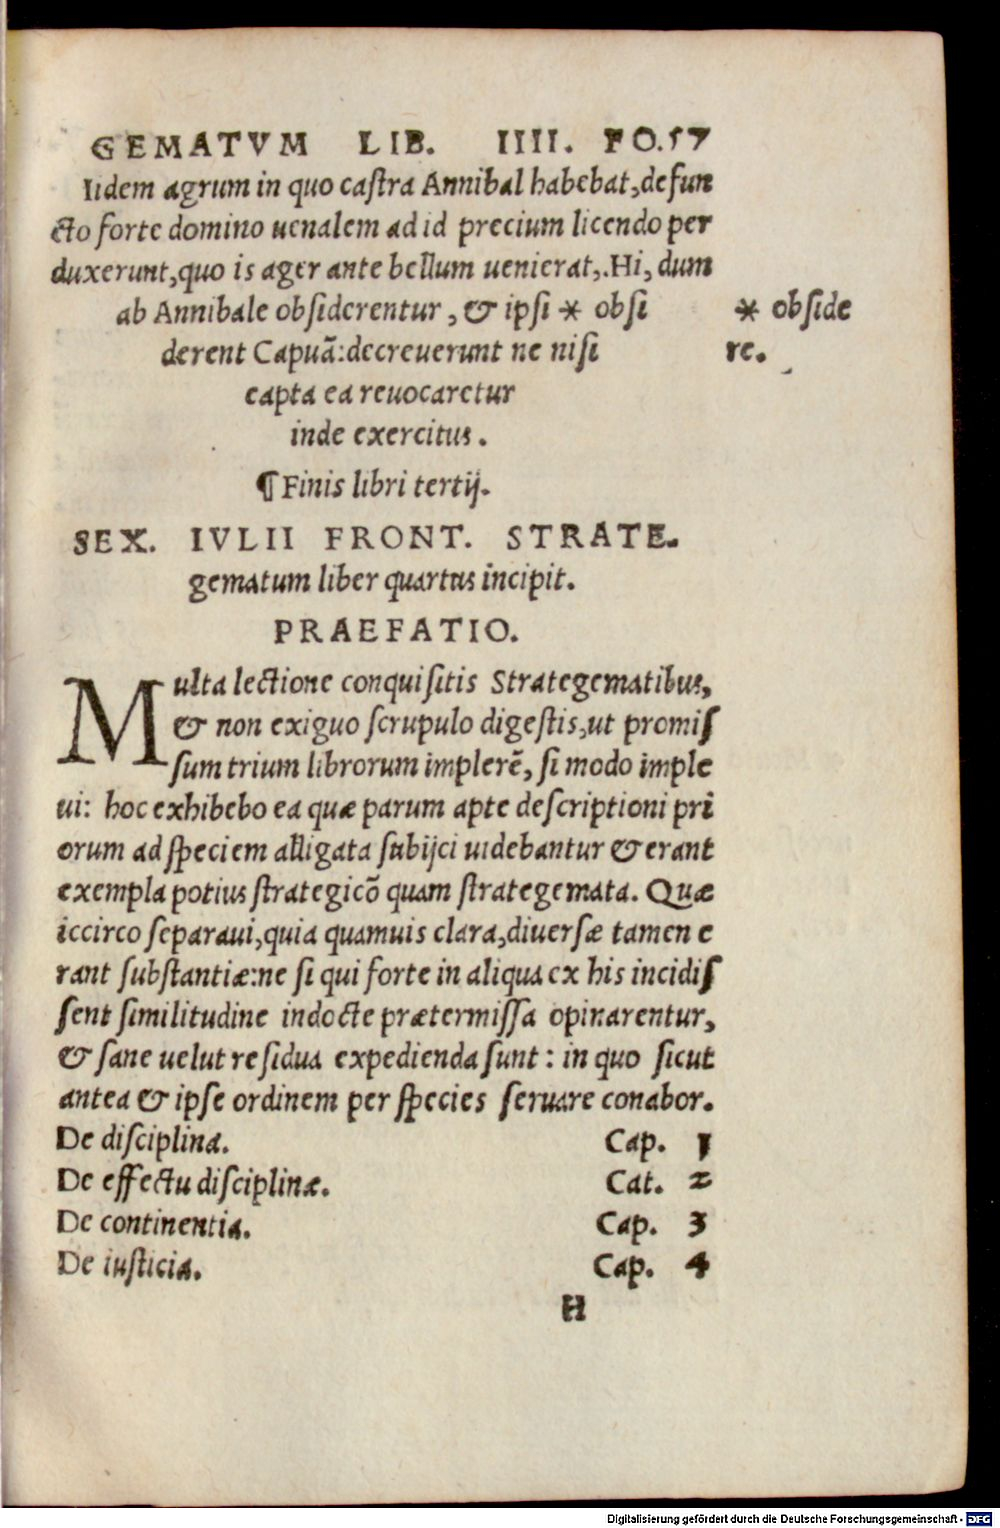 GEMATVM LIB. IIII. FO.57
Iidem agrum in quo castra Annibal habebat,defun
cto forte domino uenalem ad id precium licendo per
duxerunt,quo is ager ante bellum uenierat,.Hi, dum
ab Annibale obsiderentur , & ipsi * obsi
* obside
derent Capuā:decreuerunt ne nisi
re.
capta ea reuocaretur
inde exercitus .
¶ Finis libri tertij.
SEX. IVLII FRONT. STRATE.
gematum liber quartus incipit.
PRAEFATIO.
Multa lectione conquisitis Strategematibus,
& non exiguo scrupulo digestis,ut promis
sum trium librorum implerē, si modo imple
ui: hoc exhibebo ea quæ parum apte descriptioni pri
orum ad speciem alligata subijci uidebantur & erant
exempla potius strategicō quam strategemata. Quæ
iccirco separaui,quia quamuis clara,diuersæ tamen e
rant substantiæ:ne si qui forte in aliqua ex his incidis
sent similitudine indocte prætermissa opinarentur,
& sane uelut residua expedienda sunt : in quo sicut
antea & ipse ordinem per species seruare conabor.
De disciplina. Cap. 1
De effectu disciplinæ. Cat. 2
De continentia. Cap. 3
De iusticia. Cap. 4
H
Digitalisierung gefördert durch die Deutsche Forschungsgemeinschaft - DFG